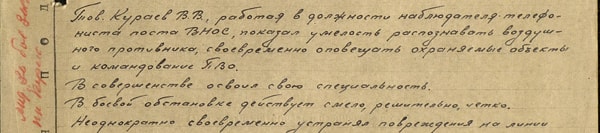 Тов. Кураев В.В., работая в должности наблюдателя-телефо-
ниста поста ВНОС, показал умелость распознавать воздуш-
ного противника, своевременно оповещать охраняемые объекты
и командование ПВО.
В совершенстве освоил свою специальность.
В боевой обстановке действует смело, решительно, четко.
Неоднократно своевременно устранял повреждения на линии